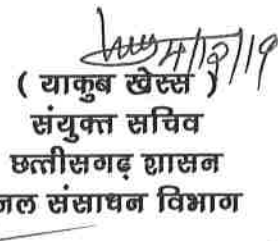 ( याकुब खेस्स )
संयुक्त सचिव
छत्तीसगढ़ शासन
जल संसाधन विभाग